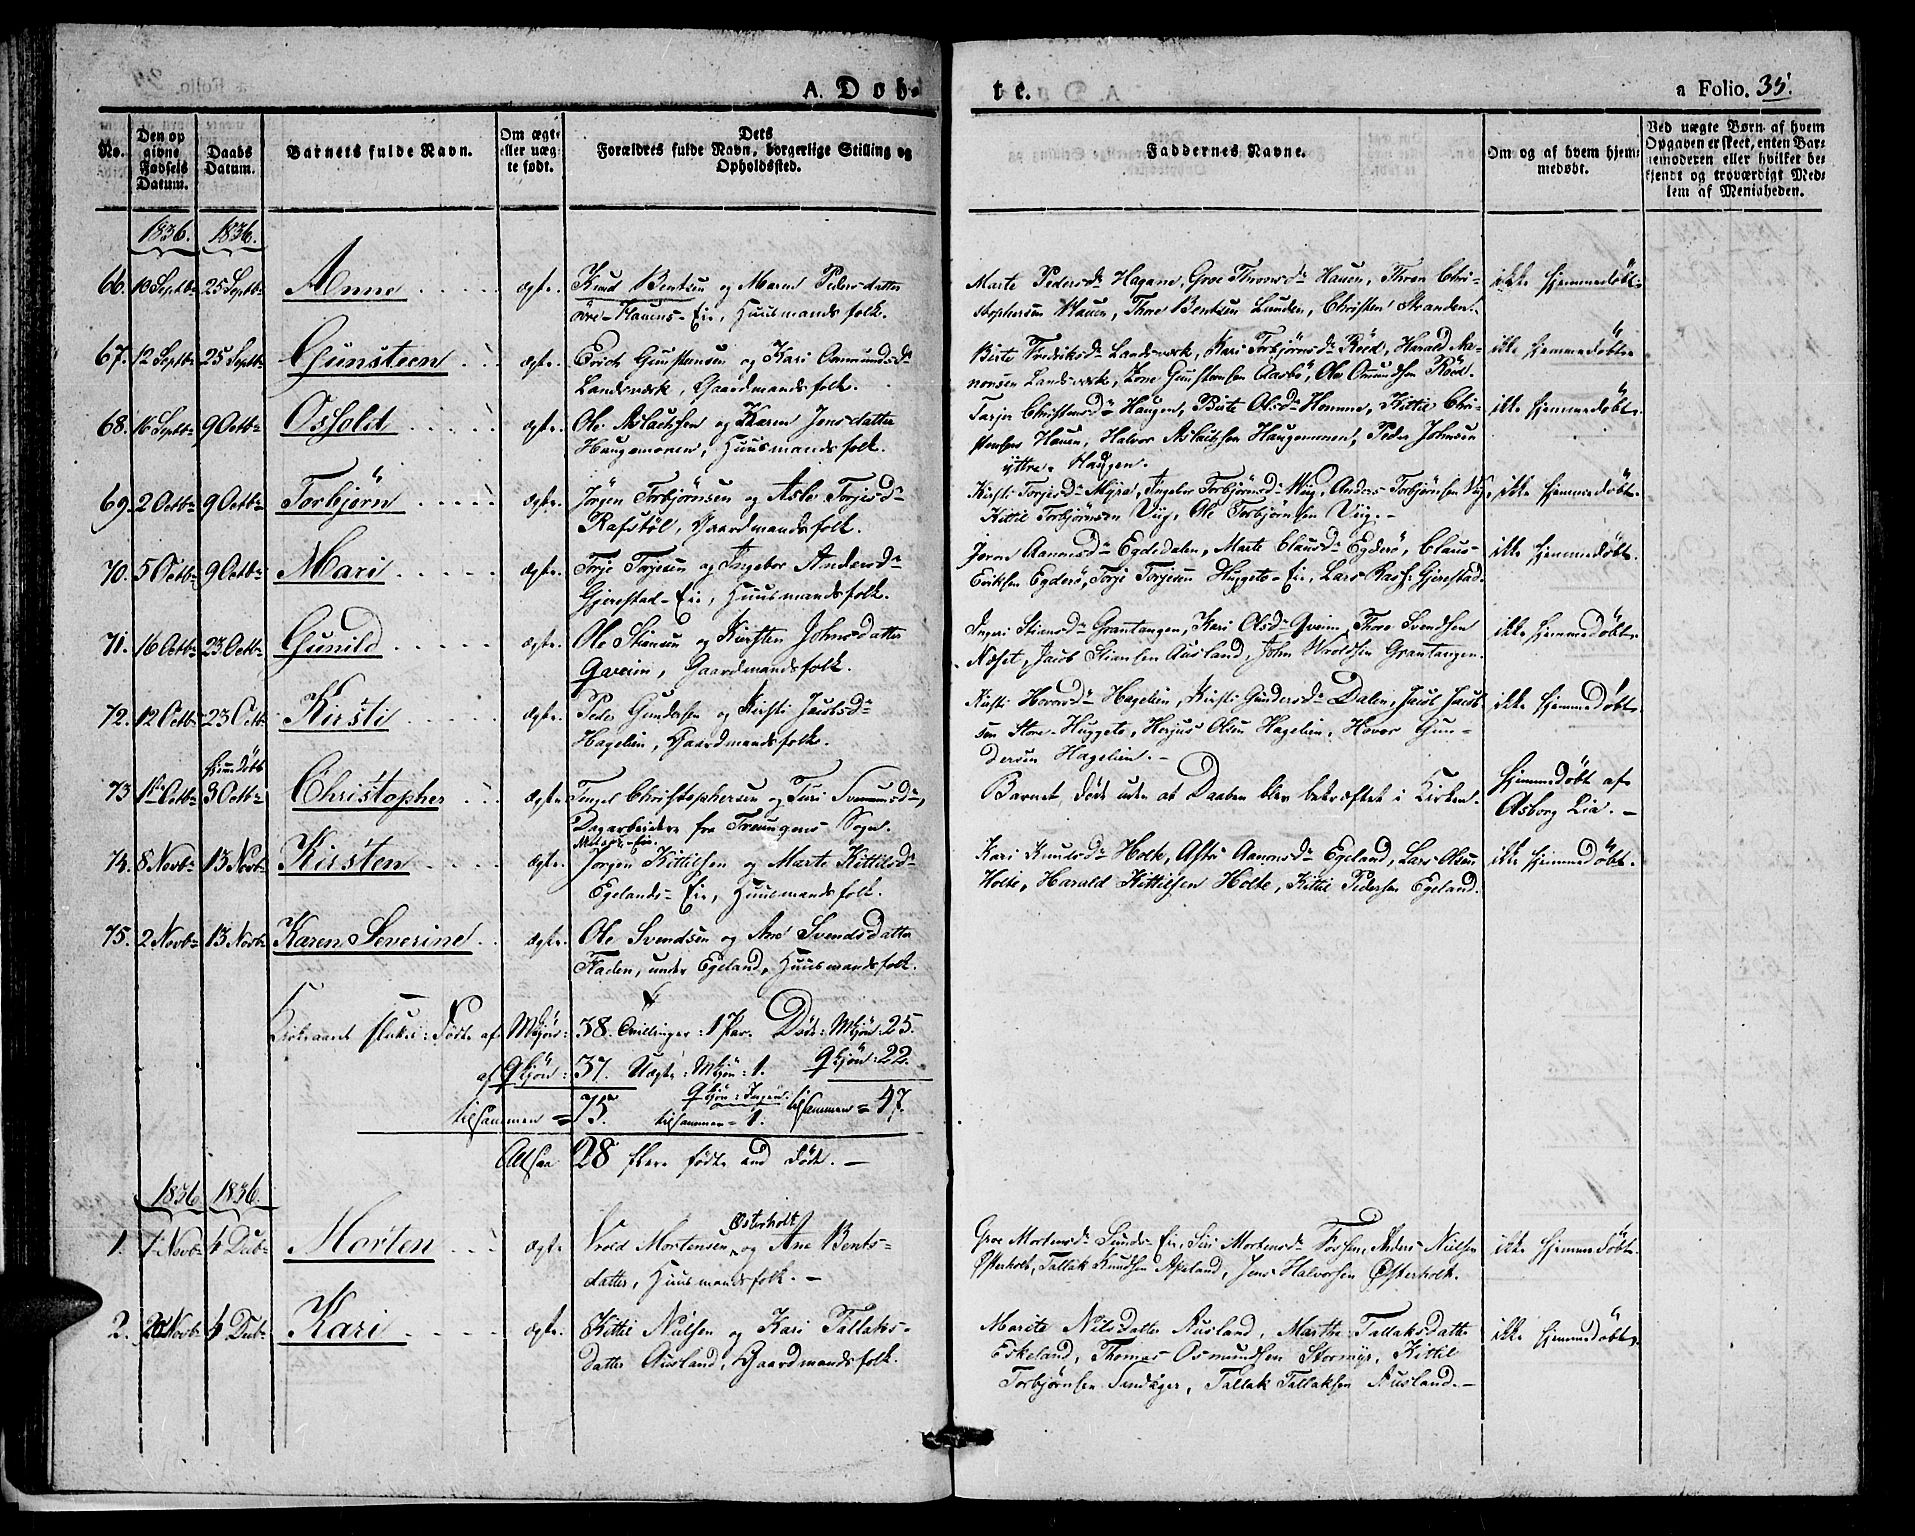 A. Døb-
te.
a Folio. 35.
No.
Den opgivne Fødsels Datum.
Daabs Datum.
Barnets fulde Navn.
Om ægte eller uægte født.
Dets Forældres fulde Navn, borgerlige Stilling og Opholdssted.
Faddernes Navne.
Om og af hvem hjemmedøbt.
Ved uægte Børn af hvem Opgaven er skeet, enten Barnemoderen eller hvilket bekjendt og troværdigt Medlem af Menigheden.
1836. 1836.
66. 10 Septb. 25 Septb. Anne ægte. Knud Bentsen og Maren Pedersdatter
øvre-Hauens-Eie, Huusmandsfolk.
Marte Pedersd. Hagane, Groe Thronsd. Hauen, Thron Chri-
stophersen Hauen, Thore Bentsen Lunden, Christen Stranden.
ikke hjemmedøbt.
67. 12 Septb. 25 Septb. Gunsteen ægte. Erich Gunstensen og Kari Aamundsd.
Landsværk, Gaardmandsfolk.
Birte Fredriksd. Landsværk, Kari Torbjørnsd. Röed, Harald Aa-
nonsen Landsværk, Gunstensen Aasbö, Ole Omundsen Röed.
ikke hjemmedøbt.
68. 16 Septb. 9 Octb. Osfold ægte. Ole Aslachsen og Karen Jensdatter
Haugemoren, Huusmandsfolk.
Tarjer Christensd. Haugen, Birte Olsd. Homme, Kittil Chri-
stensen Hauen, Halvor Aslachsen Haugemonen, Peder Johnsen
yttre-Haugen.
ikke hjemmedøbt.
69. 2 Octb. 9 Octb. Torbjørn ægte. Jørgen Torbjørnsen og Aslou Torjesd.
Rafstøl, Gaardmandsfolk.
Kirsti Torjesd. Myra, Ingebor Torbjørnsd. Viig, Anders Torbjørnsen Viig,
Kittil Torbjørnsen Viig, Ole Torbjørnsen Viig.
ikke hjemmedøbt.
70. 5 Octb. 9 Octb. Mari ægte. Torje Torjesen og Ingebor Andersd.
Gjerestad-Eie, Huusmandsfolk.
Joren Aanonsd. Egdedalen, Marte Clausd. Egderö, Claus
Eriksen Egderö, Torje Torjesen Huggets-Eie, Lars Gjerestad.
ikke hjemmedøbt.
71. 16 Octb. 23 Octb. Gunild ægte. Ole Stiansen og Kirsten Johnsdatter
Qveim, Gaardmandsfolk.
Ingeri Stiansd. Grantangen, Kari Olsd. Qveim, Thore Svendsen
Næset, Jacob Stiansen Ausland, John Wroldsen Grantangen.
ikke hjemmedøbt.
72. 12 Octb. 23 Octb. Kirsti ægte. Peder Gundersen og Kirsti Jacobsd.
Hagelien, Gaardmandsfolk.
Kirsti Hovorsd. Hagelien, Kirsti Gundersd. Dalen, Jacob Jacob-
sen Store-Huggets, Herjus Olsen Hagelien, Hovor Gun-
dersen Hagelien.
ikke hjemmedøbt.
73. 1 Octb. hjemmedöbt 3 Octb. Christopher ægte. Tengel Christophersen og Turi
Dagarbeidere fra Treungens Sogn.
Barnet døde uden at Daaben blev bekræftet i Kirken.
hjemmedøbt af
Asborg Lia.
74. 8 Novb. 13 Novb. Kirsten ægte. Jørgen Kittilsen og Marte Kittilsd.
Egelands-Eie, Huusmandsfolk.
Kari Knudsd. Holte, Astri Aanonsd. Egeland, Lars Olsen
Holte, Harald Kittilsen Holte, Kittil Pedersen Egeland.
ikke hjemmedøbt.
75. 2 Novb. 13 Novb. Karen Severine ægte. Ole Svendsen og Ane Svendsdatter
Fladen, under Egeland, Huusmandsfolk.
Kirkeaaret sluttet: Fødte af Mkjön: 38. Tvillinger: 1 Par. Döde: Mkjön: 25.
af Qkjön: 37. Uægte: Mkjön: 1. Qkjön: 22.
Qkjön: Ingen.
tilsammen = 75. tilsammen = 1. tilsammen = 47.
Altsaa 28 flere fødte end døde.
1836. 1836.
1. 7 Novb. 4 Decb. Morten ægte. Vrold Mortensen Østerholt og Ane Bents-
datter, Huusmandsfolk.
Groe Mortensd. Sunds-Eie, Siri Mortensd. Fossen, Anders Nielsen
Østerholt, Tallak Knudsen Apeland, Jens Halvorsen Østerholt.
ikke hjemmedøbt.
2. 20 Novb. 4 Decb. Kari ægte. Kittil Nielsen og Kari Tallaks-
datter Ausland, Gaardmandsfolk.
Marite Nilsdatter Ausland, Marthe Tallaksdatter
Eskeland, Thomas Osmundsen Stormyr, Kittil
Torbjørnsen Sandager, Tallak Tallaksen Ausland.
ikke hjemmedøbt.